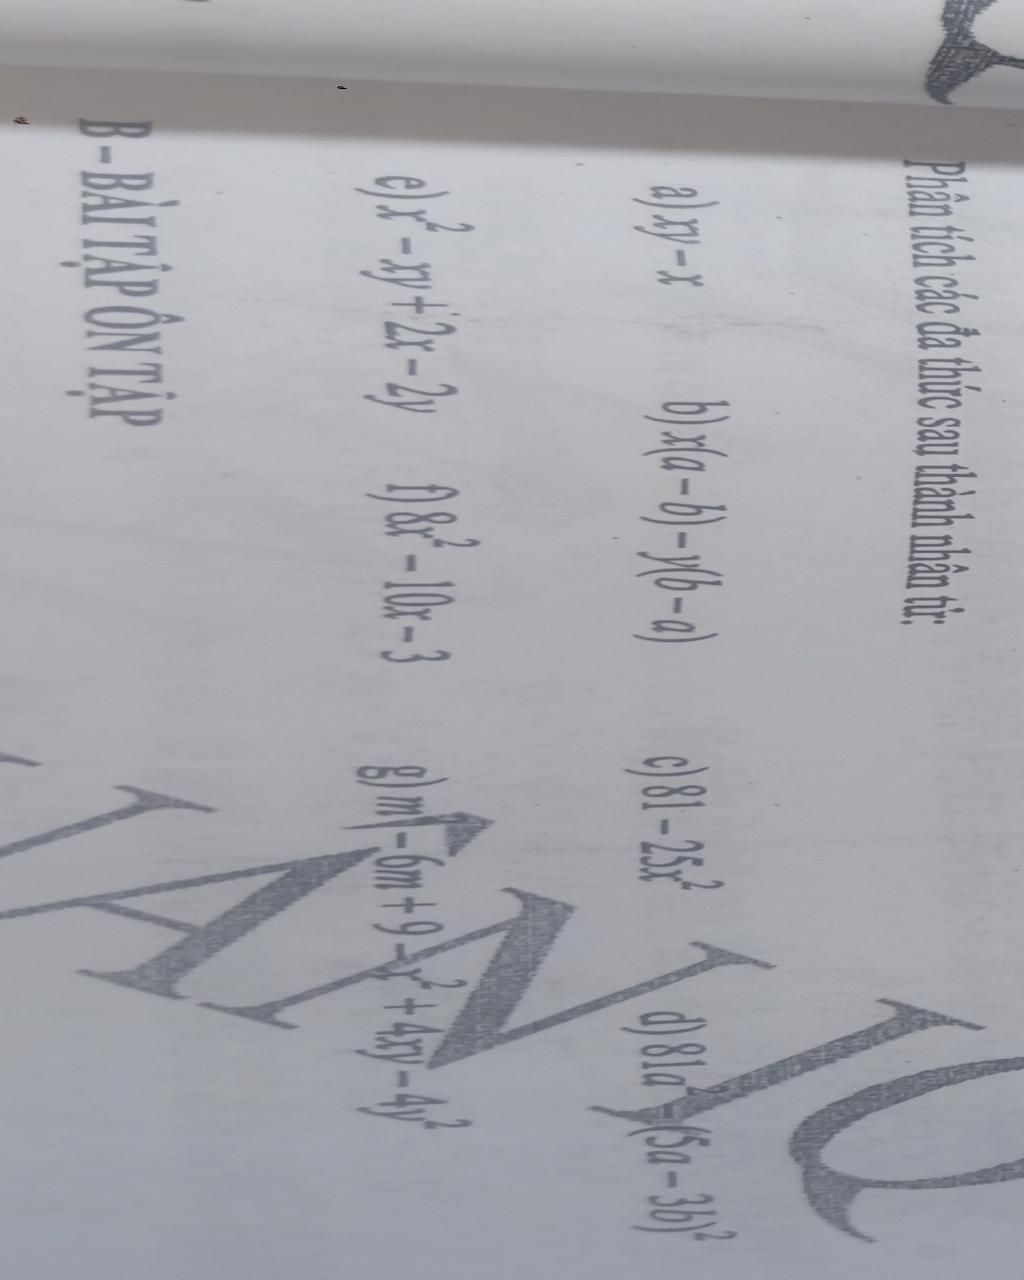 Phân tích các đa thức sau thành nhân tử:
a) xy – x b) x(a – b) – y(b – a) c) 81 – 25x² d) 81a² – (5a – 3b)²
e) x² – xy + 2x – 2y f) 8x² – 10x – 3 g) m² – 6m + 9 – x² + 4xy – 4y²
B – BÀI TẬP ÔN TẬP